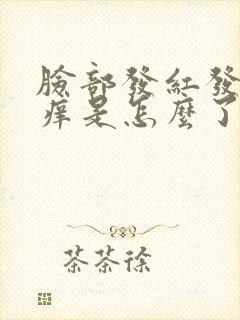 臉部發紅發
痒是怎麼了
茶茶徐